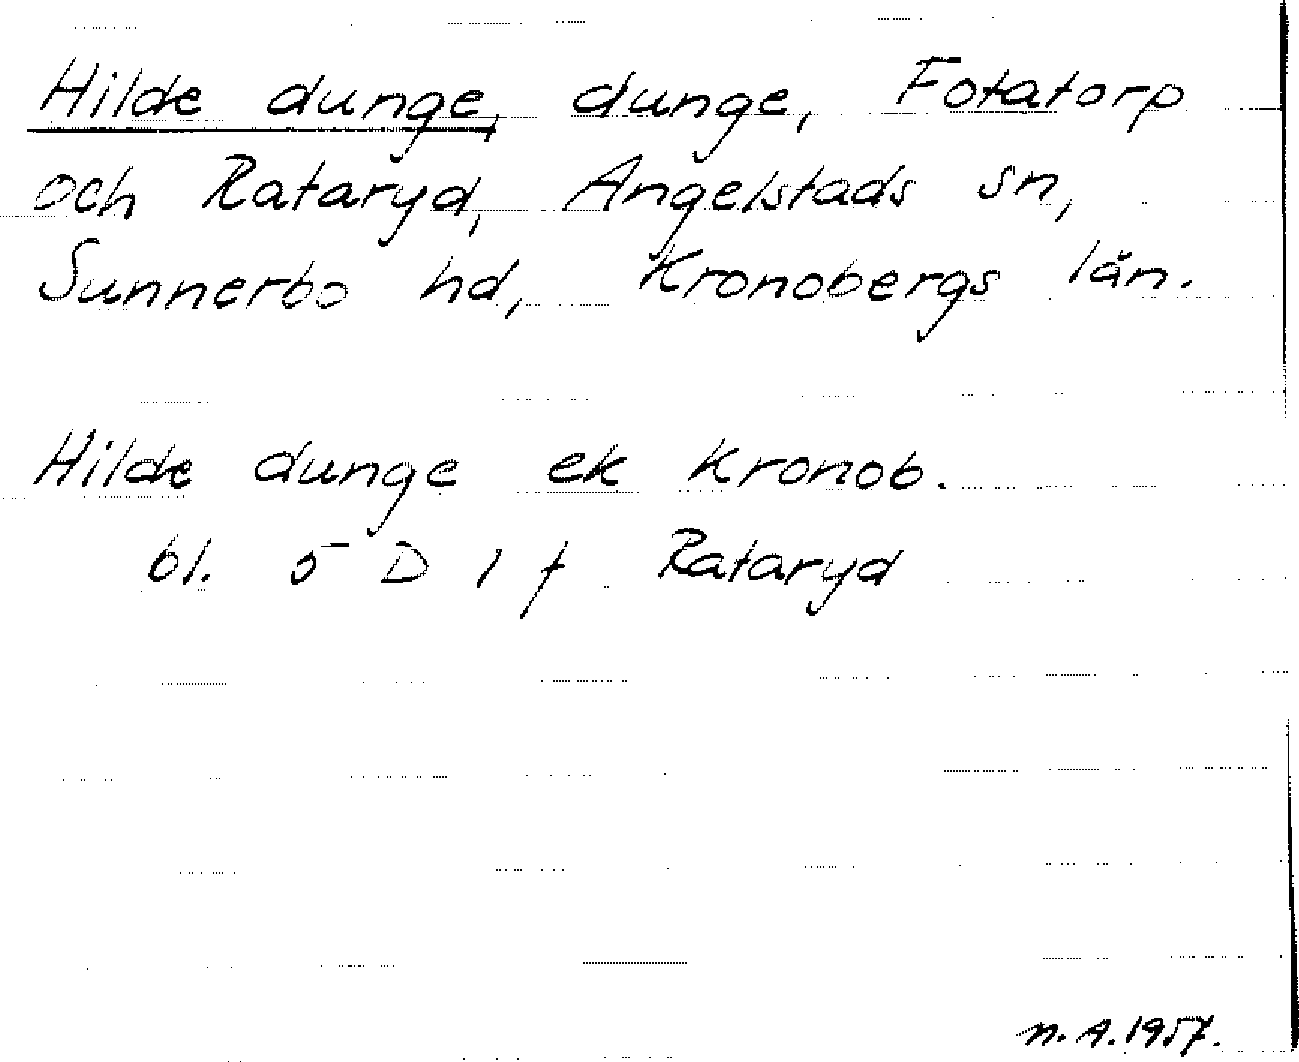 Hilde dunge, dunge, Fotatorp
och Rataryd, Angelstads sn,
Sunnerbo hd, Kronobergs län.
Hilde dunge ek Kronob.
bl. 5 D 1 f Rataryd
n. A. 1957.